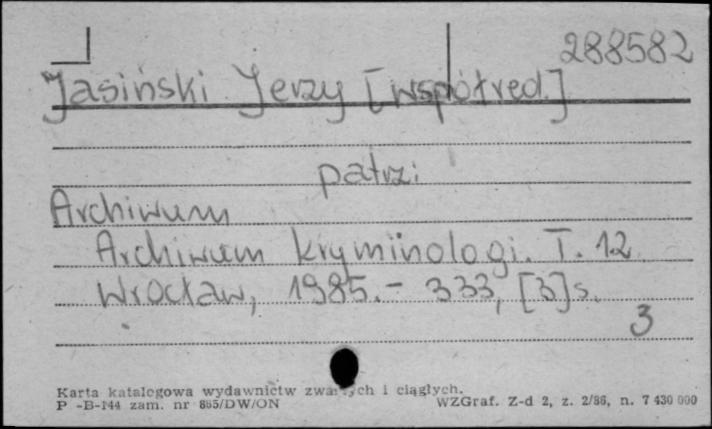 288582
Jasiński Jerzy [współred.]
patrz:
Archiwum
Archiwum kryminologi. T. 12
Wrocław, 1985.- 333, [3]s.
3
Karta katalogowa wydawnictw i ciągłych.
P -B-144 zam. nr 865/DW/ON WZGraf. Z-d 2, z. 2/86, n. 7 430 000